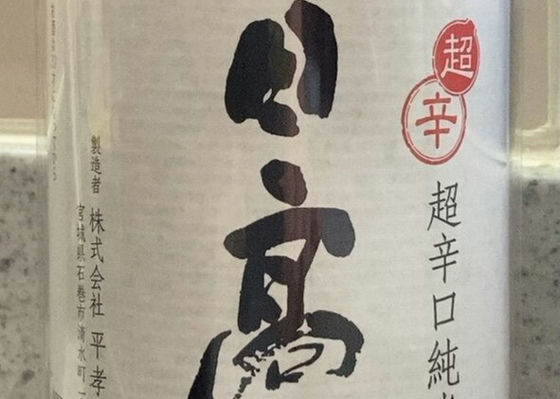 超
辛
超辛口純米
日高
製造者 株式会社 平孝
宮城県石巻市清水町一